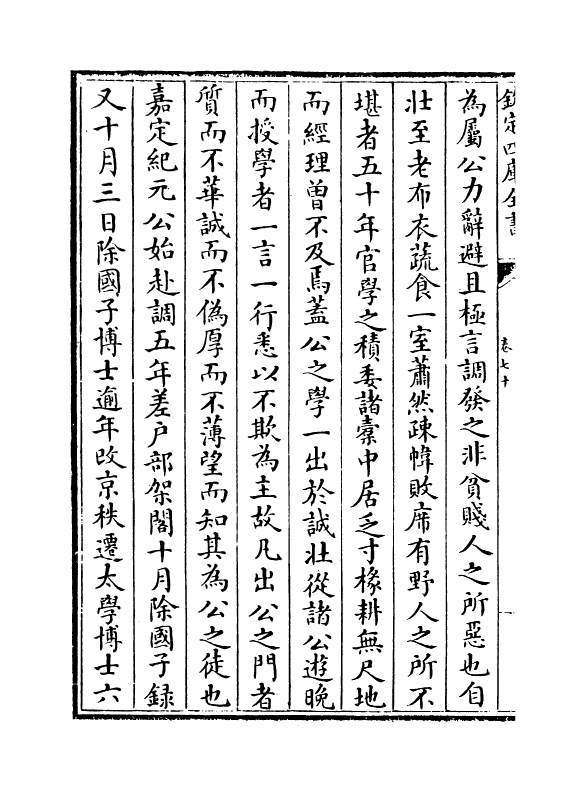 欽定四庫全書
卷七十
為屬公力辭避且極言調發之非貧賤人之所惡也自
壯至老布衣蔬食一室蕭然疎幃敗席有野人之所不
堪者五十年官學之積委諸橐中居乏寸椽耕無尺地
而經理曾不及焉蓋公之學一出於誠壯從諸公遊晚
而授學者一言一行悉以不欺為主故凡出公之門者
質而不華誠而不偽厚而不薄望而知其為公之徒也
嘉定紀元公始赴調五年差户部架閣十月除國子録
又十月三日除國子博士逾年改京秩遷太學博士六